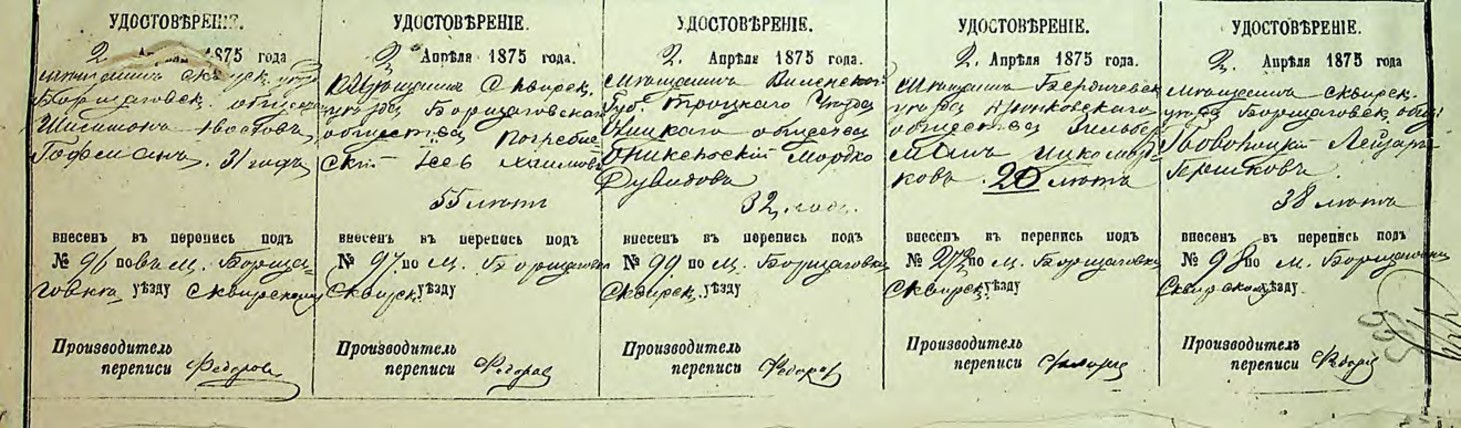 УДОСТОВѢРЕНІЕ.
2. Апрѣля 1875 года
мѣщанинъ Сквирск. уѣзда
Борщаговск. общества
Гофманъ. 31 годъ
внесенъ въ перепись подъ
№ 96 по въ м. Борща-
говкѣ уѣзду Сквирскому
Производитель
переписи Федоровъ
УДОСТОВѢРЕНІЕ.
2. Апрѣля 1875 года.
Мѣщанинъ Сквирск.
уѣзда Борщаговскаго
общества Погребис-
скій Хаимовъ
55 лѣтъ
внесенъ въ перепись подъ
№ 97. по м. Борщаговкѣ
Сквирск. уѣзду
Производитель
переписи Федоровъ
УДОСТОВѢРЕНІЕ.
2. Апрѣля 1875 года.
Мѣщанинъ Виленской
Губ. Троцкаго Уѣзда
общества
Мордко
Дувидовъ
32. года.
внесенъ въ перепись подъ
№ 99. по м. Борщаговкѣ
Сквирск. уѣзду
Производитель
переписи Федоровъ
УДОСТОВѢРЕНІЕ.
2. Апрѣля 1875 года.
Мѣщанинъ Бердичевск
уѣзда
общества Зильбер-
манъ Ицко Мор-
ковъ. 20 лѣтъ
внесенъ въ перепись подъ
№ по м. Борщаговкѣ
Сквирск. уѣзду
Производитель
переписи Федоровъ
УДОСТОВѢРЕНІЕ.
2. Апрѣля 1875 года
мѣщанинъ Сквирск.
уѣзда Борщаговск. общ.
Лейзаръ
Гершковъ.
38 лѣтъ
внесенъ въ перепись подъ
№ 98 по м. Борщаговки
Сквирскому уѣзду.
Производитель
переписи Федоровъ